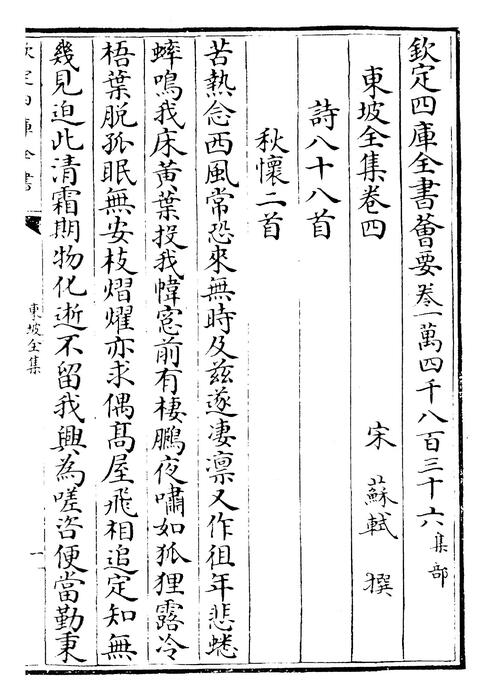 欽定四庫全書薈要卷一萬四千八百三十六集部
東坡全集卷四
宋 蘇軾 撰
詩八十八首
秋懷二首
苦熱念西風常恐來無時及兹遂凄凛又作徂年悲蟋
蟀鳴我床黄葉投我幃窓前有棲鵬夜嘯如狐狸露冷
梧葉脱孤眠無安枝熠燿亦求偶髙屋飛相追定知無
幾見迫此清霜期物化逝不留我興為嗟咨便當勤秉
欽定四庫全書
東坡全集
一